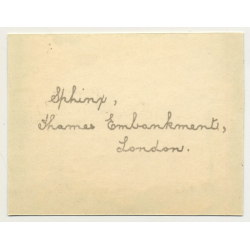 Sphinx,
Thames Embankment,
London.